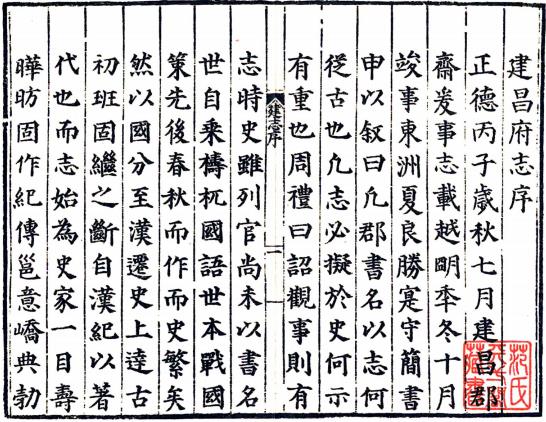 建昌府志序
正德丙子歲秋七月建昌郡
齋爰事志載越明年冬十月
竣事東洲夏良勝寔守簡書
申以叙曰凡郡書名以志何
從古也凡志必擬於史何示
有重也周禮曰詔觀事則有
建志序
一
志時史雖列官尚未以書名
世自乘檮杌國語世本戰國
策先後春秋而作而史繁矣
然以國分至漢遷史上逹古
初班固繼之斷自漢紀以著
代也而志始為史家一目壽
曄昉固作紀傳邕意嶠典勃
范氏
藏書